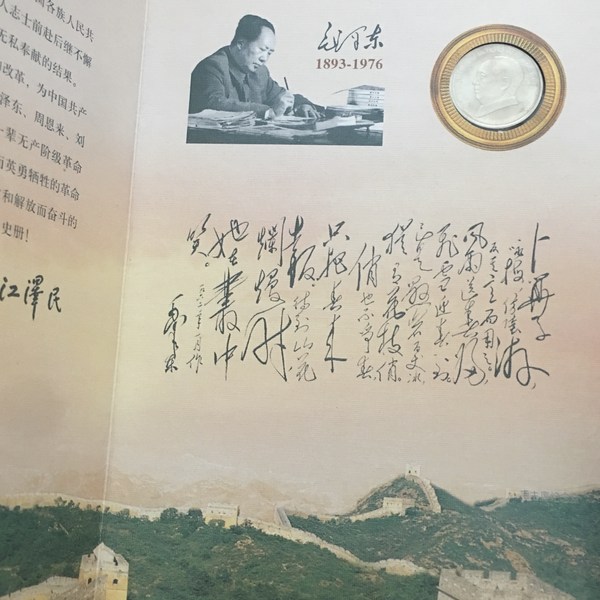 国各族人民共
人志士前赴后继不懈
无私奉献的结果。
改革，为中国共产
泽东、周恩来、刘
一辈无产阶级革命
英勇牺牲的革命
和解放而奋斗的
史册！
江澤民
毛泽东
1893-1976
卜算子
咏梅
反其意而用之。
风雨送春归
飞雪迎春到
犹有花枝俏
俏也不争春
只把春来
报。待到山花
爛熳时
她在叢中
笑。
毛泽东